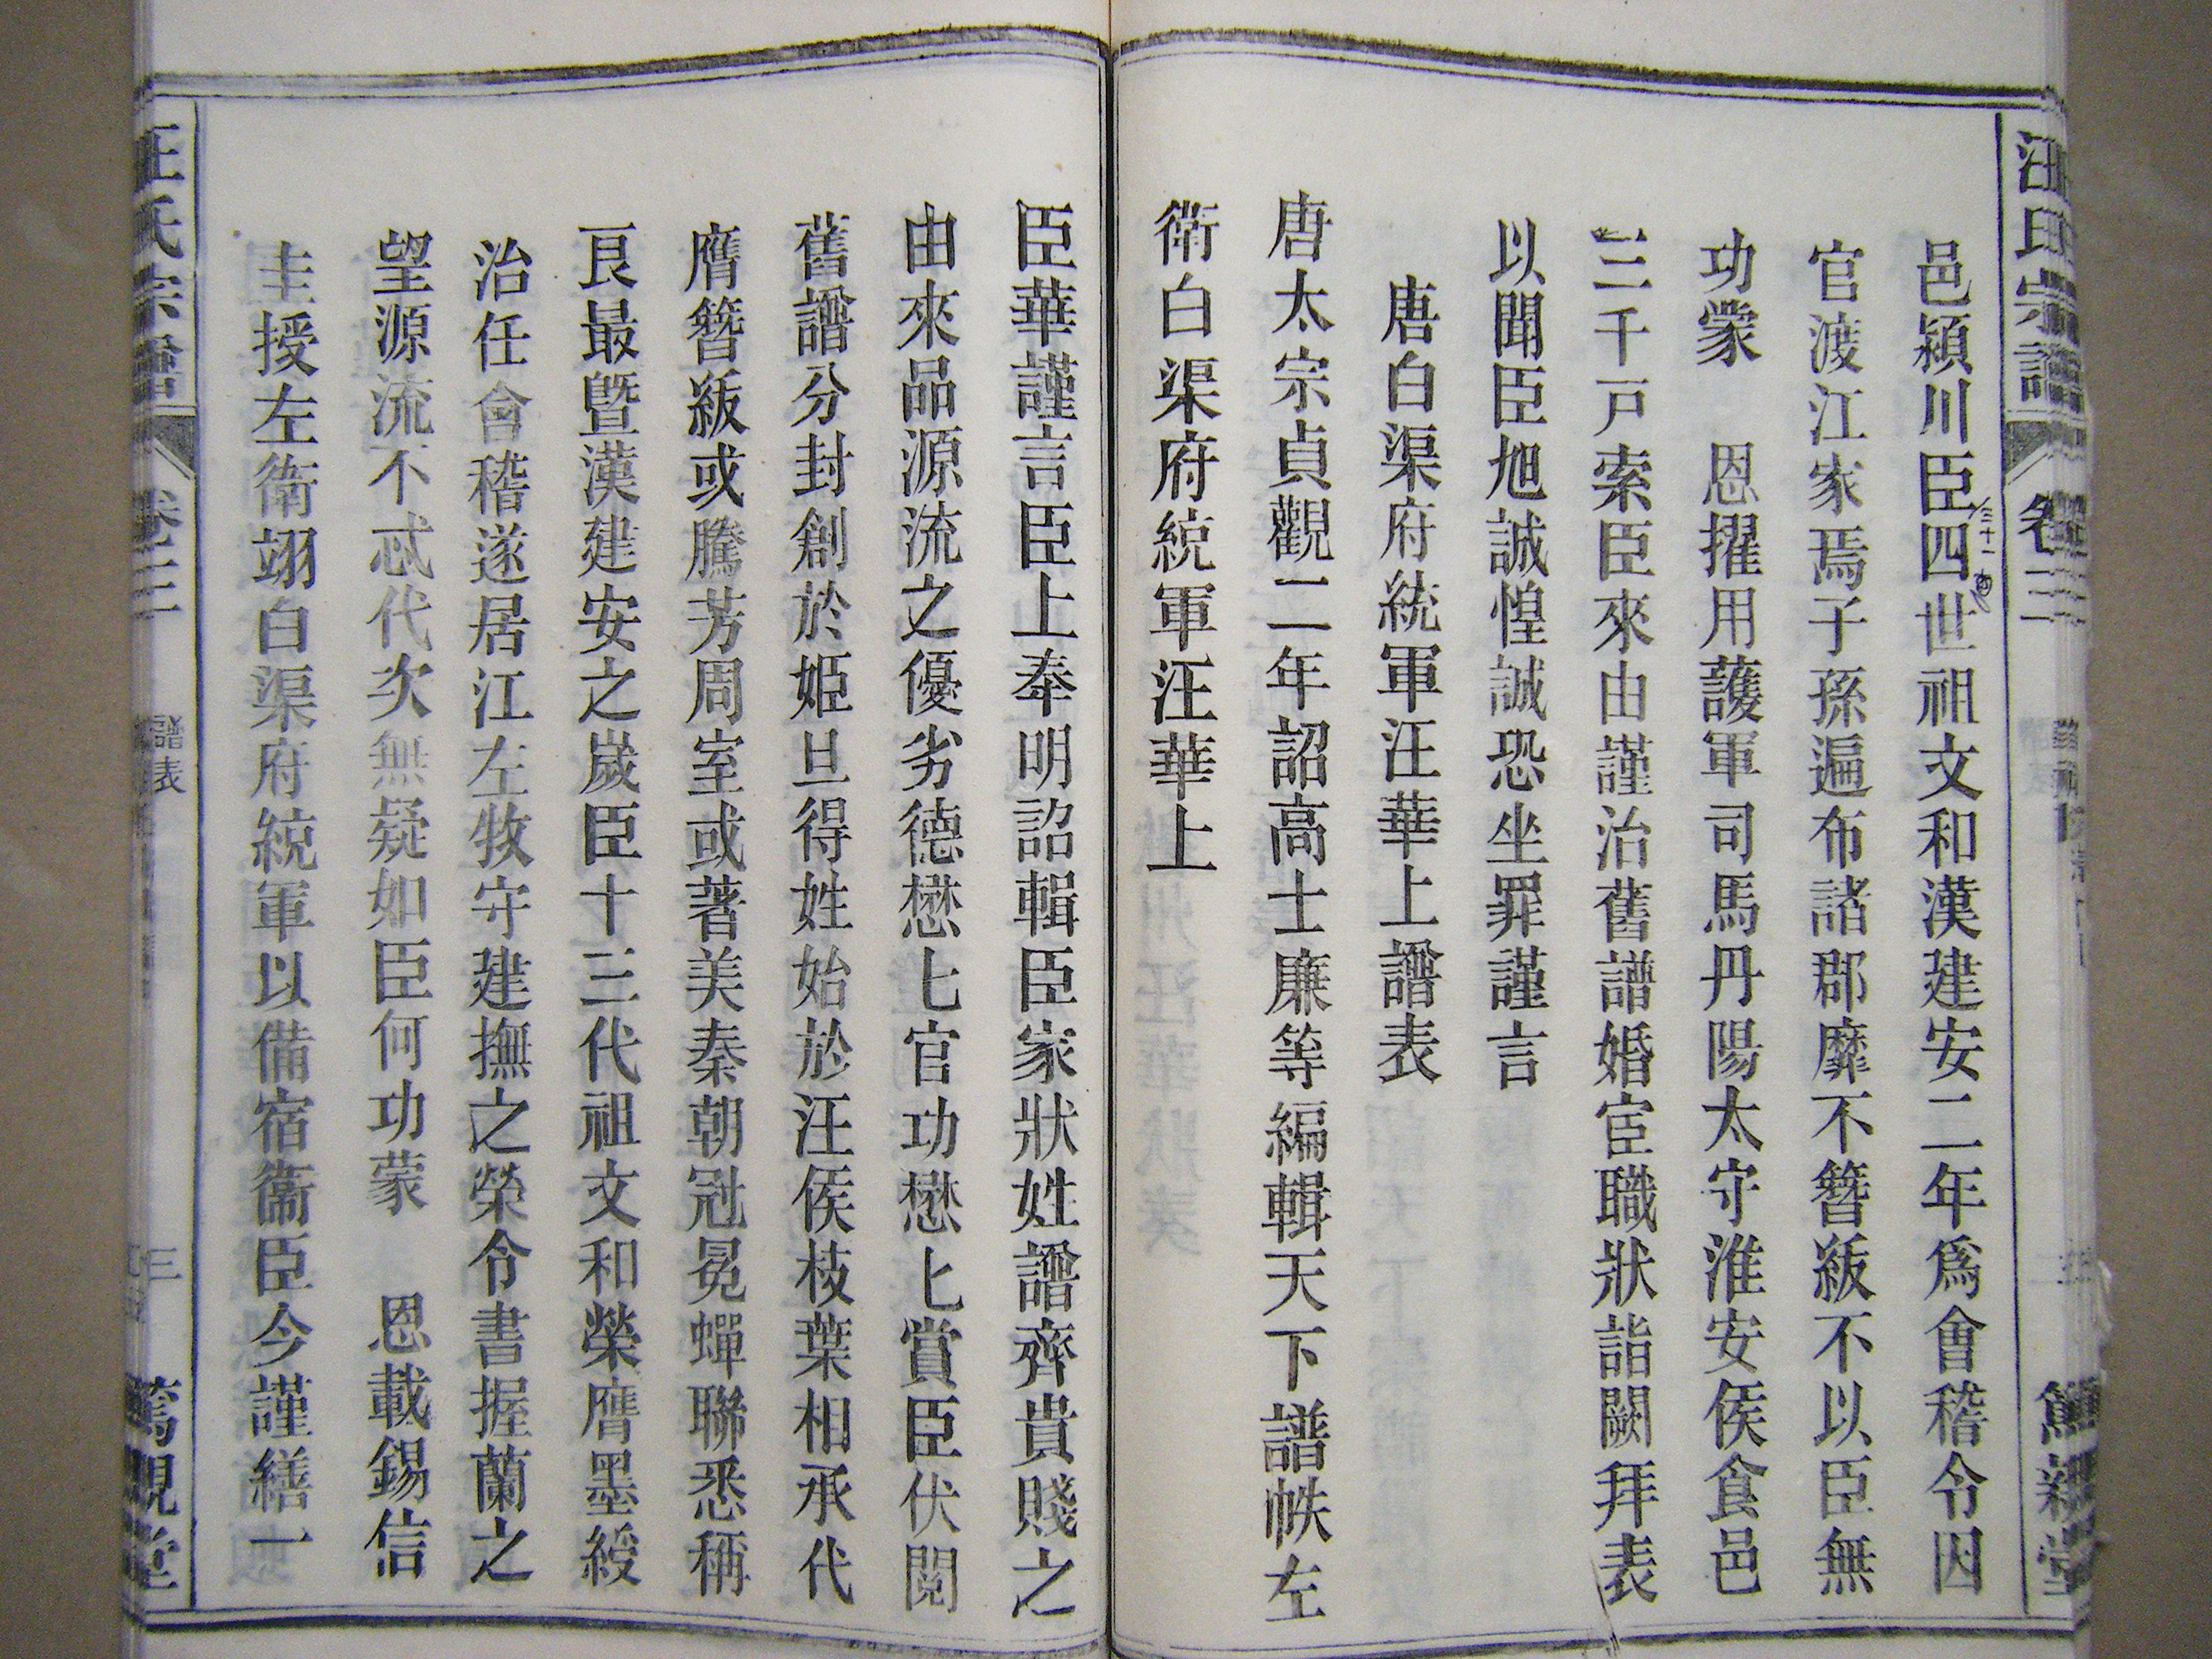 汪氏宗譜 卷三
邑潁川臣四世祖文和漢建安二年爲會稽令因
三十一
官渡江家焉子孫遍布諸郡靡不簪紱不以臣無
功䝉 恩擢用護軍司馬丹陽太守淮安侯食邑
三千戸索臣來由謹治舊譜婚宦職狀詣闕拜表
以聞臣旭誠惶誠恐坐罪謹言
唐白渠府統軍汪華上譜表
唐太宗貞觀二年詔高士廉等編輯天下譜帙左
衛白渠府統軍汪華上
臣華謹言臣上奉明詔輯臣家狀姓譜齊貴賤之
由來品源流之優劣德懋七官功懋上賞臣伏閱
舊譜分封創於姬旦得姓始於汪侯枝葉相承代
膺簪紱或騰芳周室或著美秦朝冠冕蟬聯悉稱
艮最曁漢建安之嵗臣十三代祖文和榮膺墨綬
治任會稽遂居江左牧守建撫之榮令書握蘭之
望源流不忒代次無疑如臣何功蒙 恩載錫信
圭授左衛翊白渠府統軍以備宿衞臣今謹繕一
汪氏宗譜 卷三 譜表 三 篤親堂